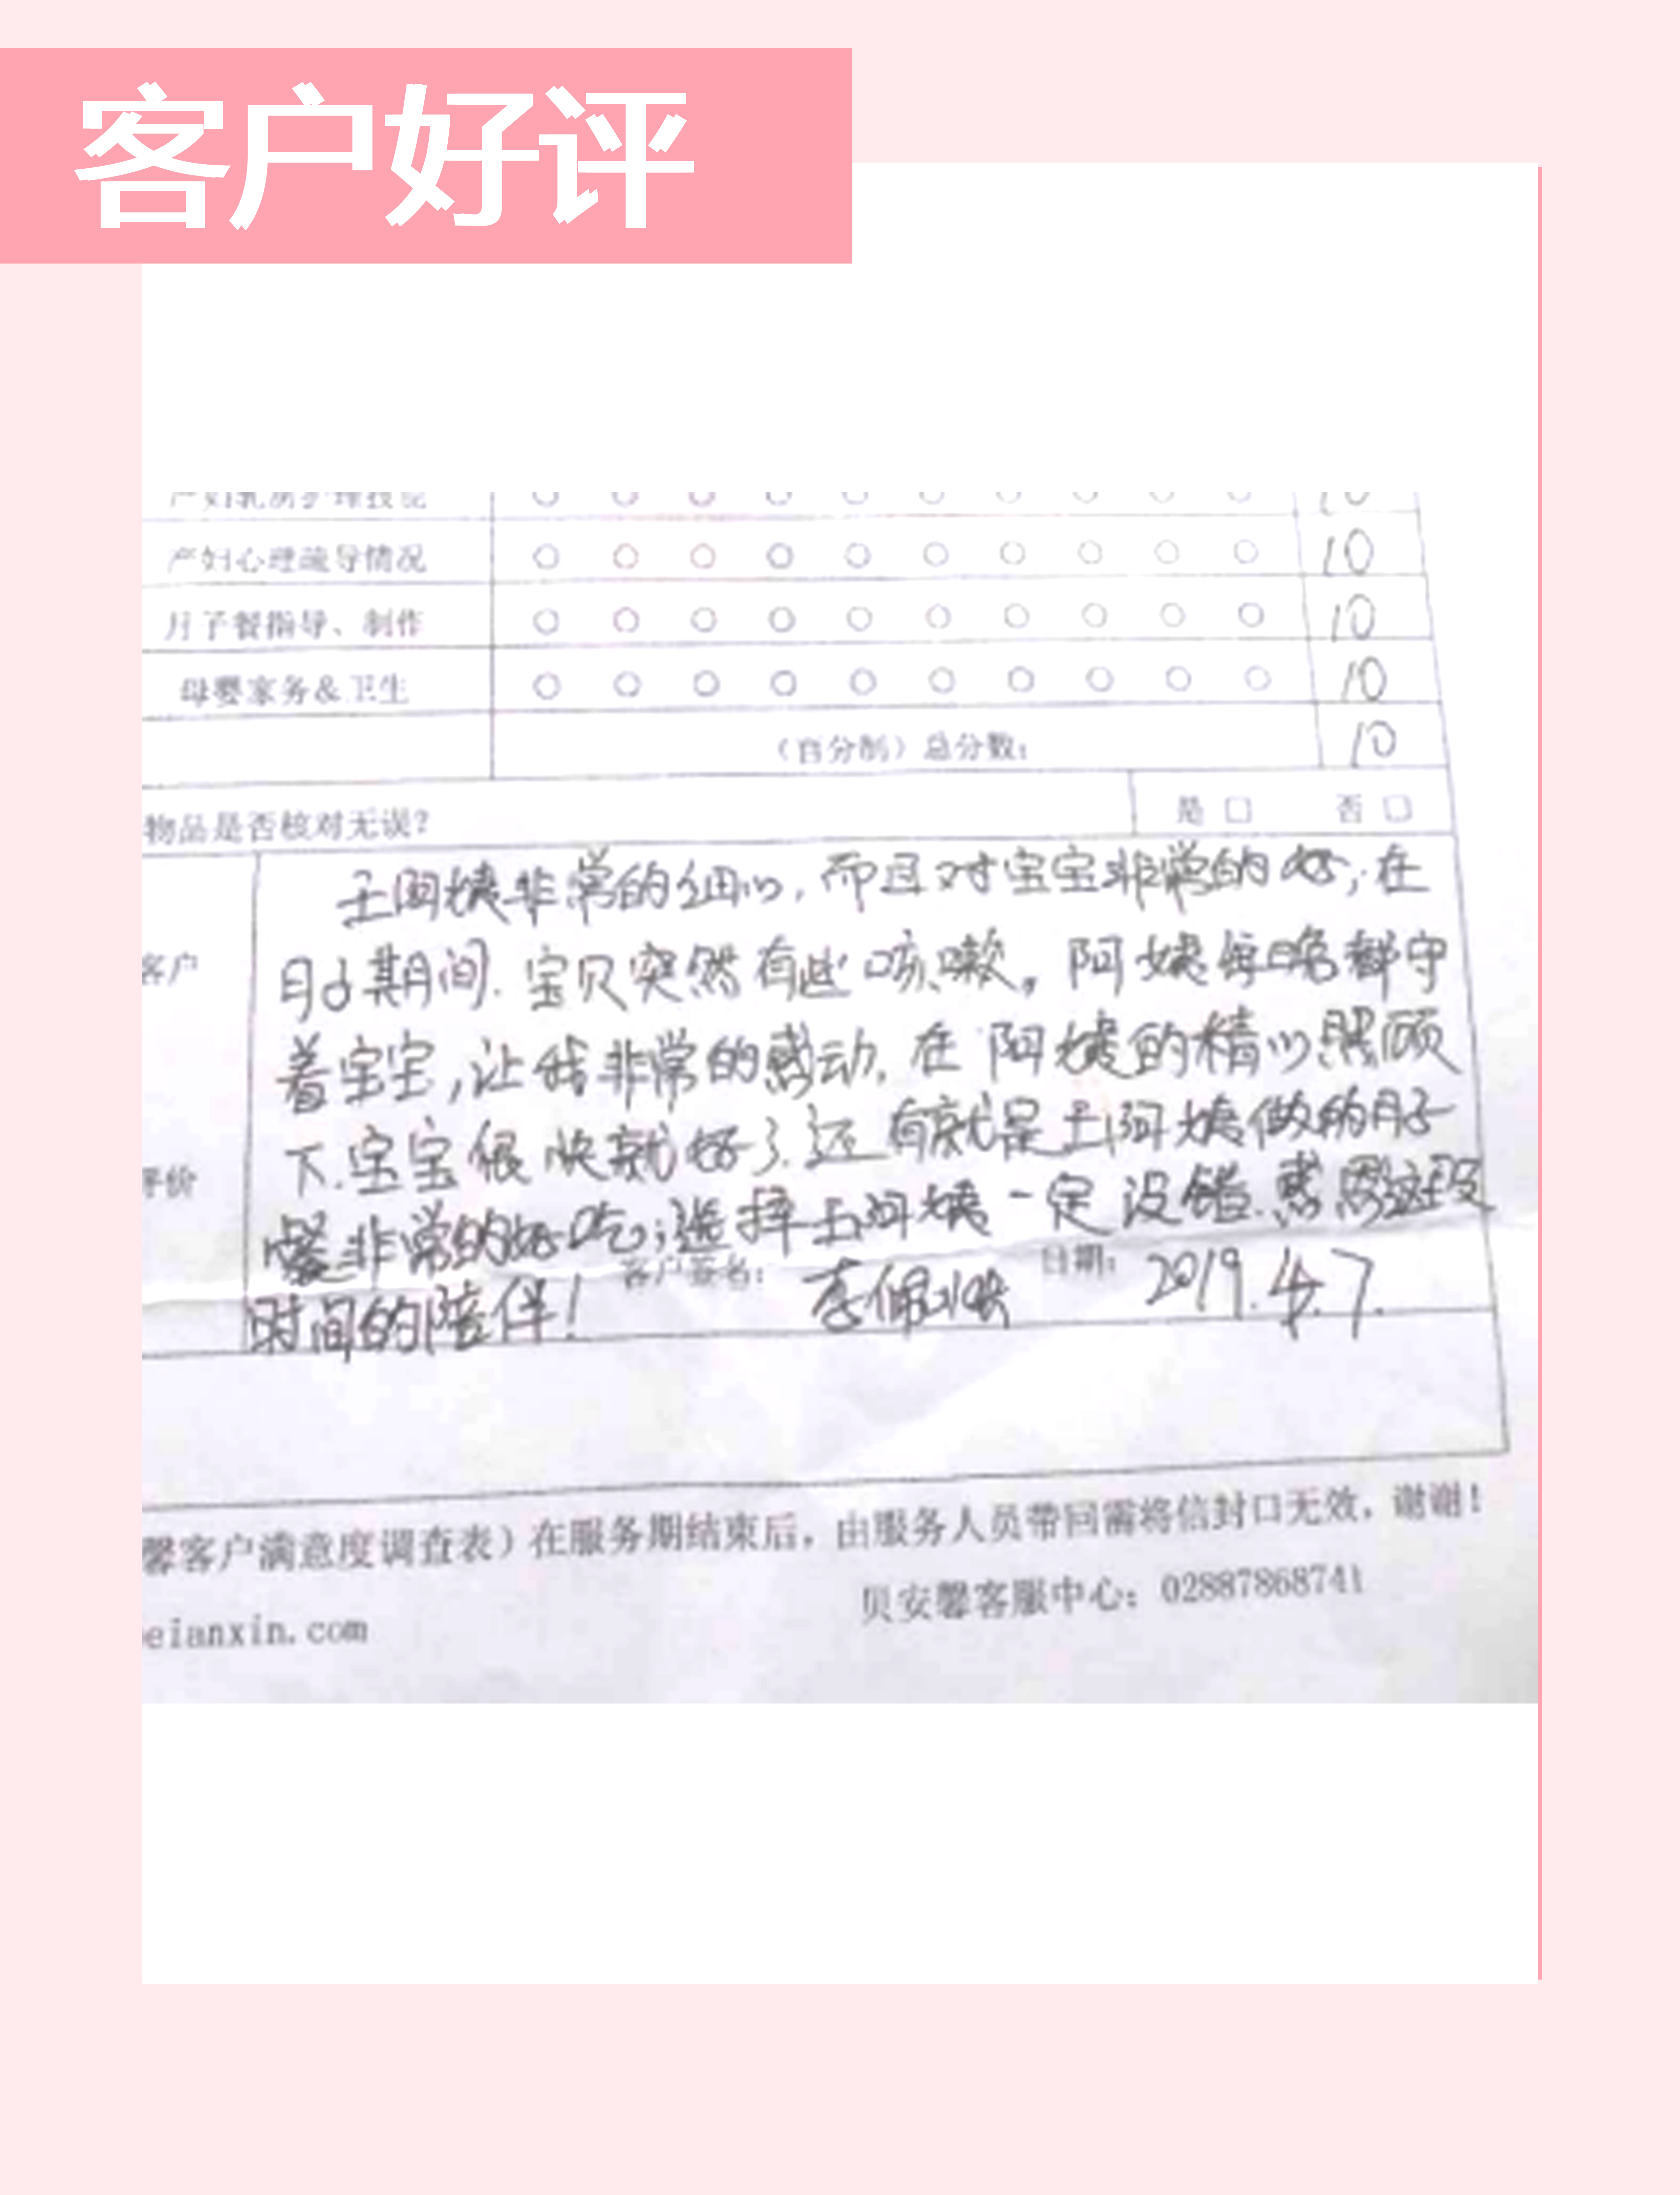 客户好评
产妇乳房护理技能 10
产妇心理疏导情况 10
月子餐指导、制作 10
母婴家务&卫生 10
(百分制)总分数: 10
物品是否核对无误? 是 □ 否 □
客户
评价
王阿姨非常的细心,而且对宝宝非常的好,在
月子期间.宝贝突然有些咳嗽,阿姨每晚都守
着宝宝,让我非常的感动.在阿姨的精心照顾
下.宝宝很快就好了.还有就是王阿姨做的月子
餐非常的好吃;选择王阿姨一定没错.感恩这段
时间的陪伴!
客户签名: 李佩 日期: 2019.4.7.
馨客户满意度调查表)在服务期结束后,由服务人员带回需将信封口无效,谢谢!
贝安馨客服中心:02887868741
eianxin.com